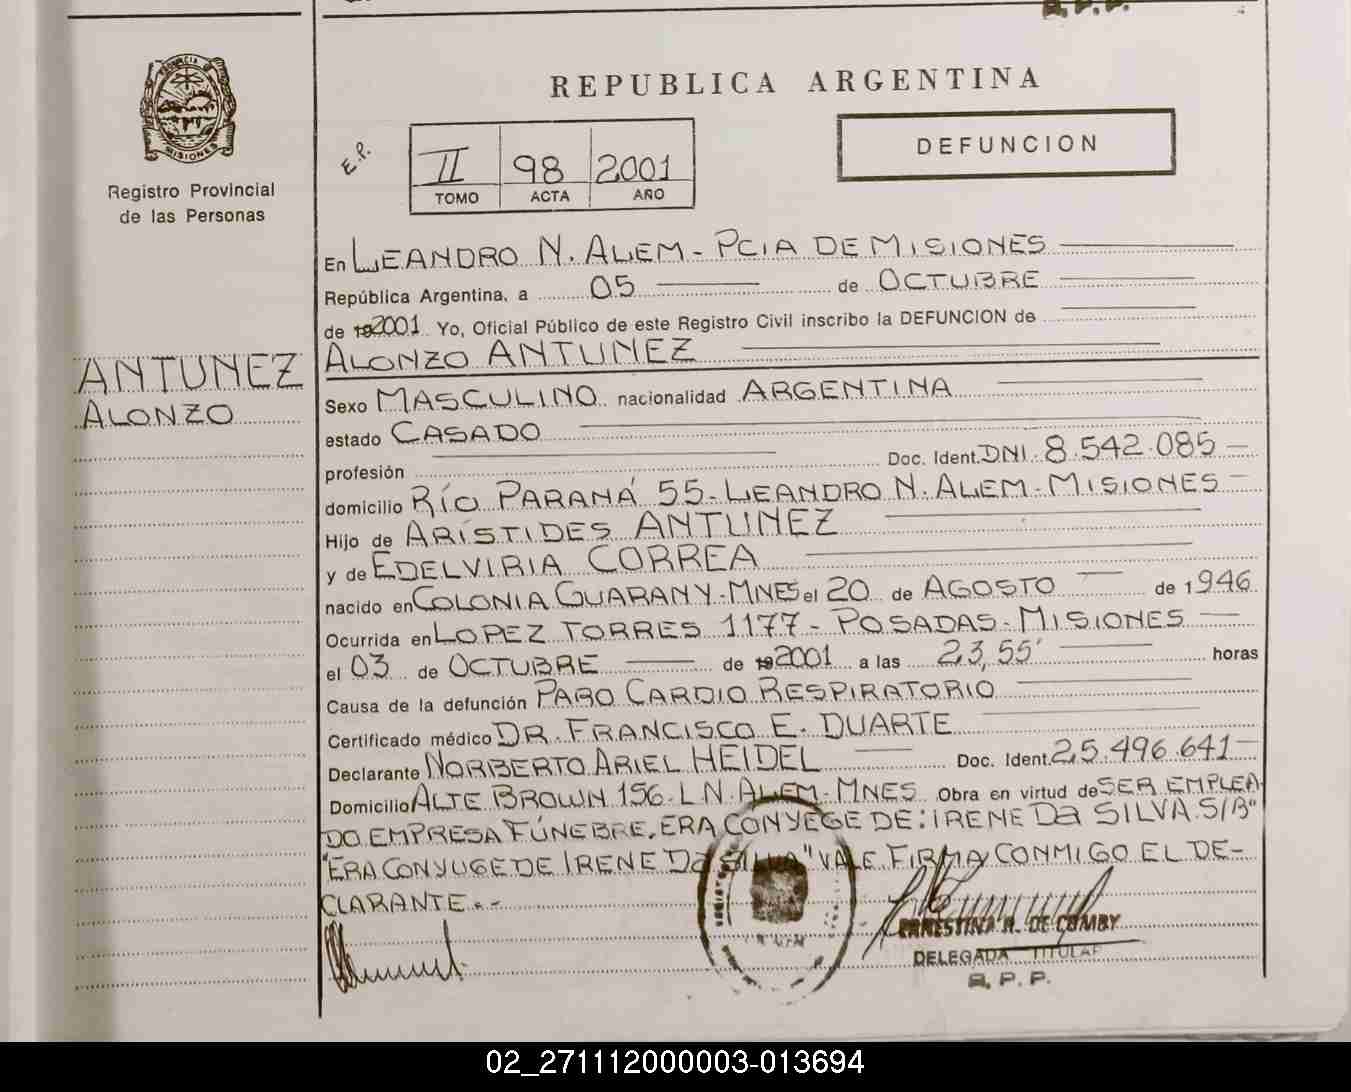 R.P.P.
PROVINCIA DE
MISIONES
Registro Provincial
de las Personas
REPUBLICA ARGENTINA
E.P.
II 98 2001
TOMO ACTA AÑO
DEFUNCION
En LEANDRO N. ALEM - PCIA DE MISIONES
República Argentina, a 05 de OCTUBRE
de 192001 Yo, Oficial Público de este Registro Civil inscribo la DEFUNCION de
ALONZO ANTUNEZ
ANTUNEZ
ALONZO
Sexo MASCULINO nacionalidad ARGENTINA
estado CASADO
profesión Doc. Ident. DNI. 8.542.085
domicilio RÍO PARANÁ 55 - LEANDRO N. ALEM - MISIONES
Hijo de ARÍSTIDES ANTUNEZ
y de EDELVIRIA CORREA
nacido en COLONIA GUARANY - MNES el 20 de AGOSTO de 1946
Ocurrida en LOPEZ TORRES 1177 - POSADAS - MISIONES
el 03 de OCTUBRE de 192001 a las 23,55' horas
Causa de la defunción PARO CARDIO RESPIRATORIO
Certificado médico DR. FRANCISCO E. DUARTE
Declarante NORBERTO ARIEL HEIDEL Doc. Ident. 25.496.641
Domicilio ALTE BROWN 156 - L.N. ALEM - MNES Obra en virtud de SER EMPLEA-
DO EMPRESA FÚNEBRE. ERA CONYEGE DE: IRENE Da SILVA. S/B"
"ERA CONYUGE DE IRENE Da SILVA" VALE. FIRMA CONMIGO EL DE-
CLARANTE.-
ERNESTINA R. DE COMBY
DELEGADA TITULAR
R.P.P.
02_271112000003-013694